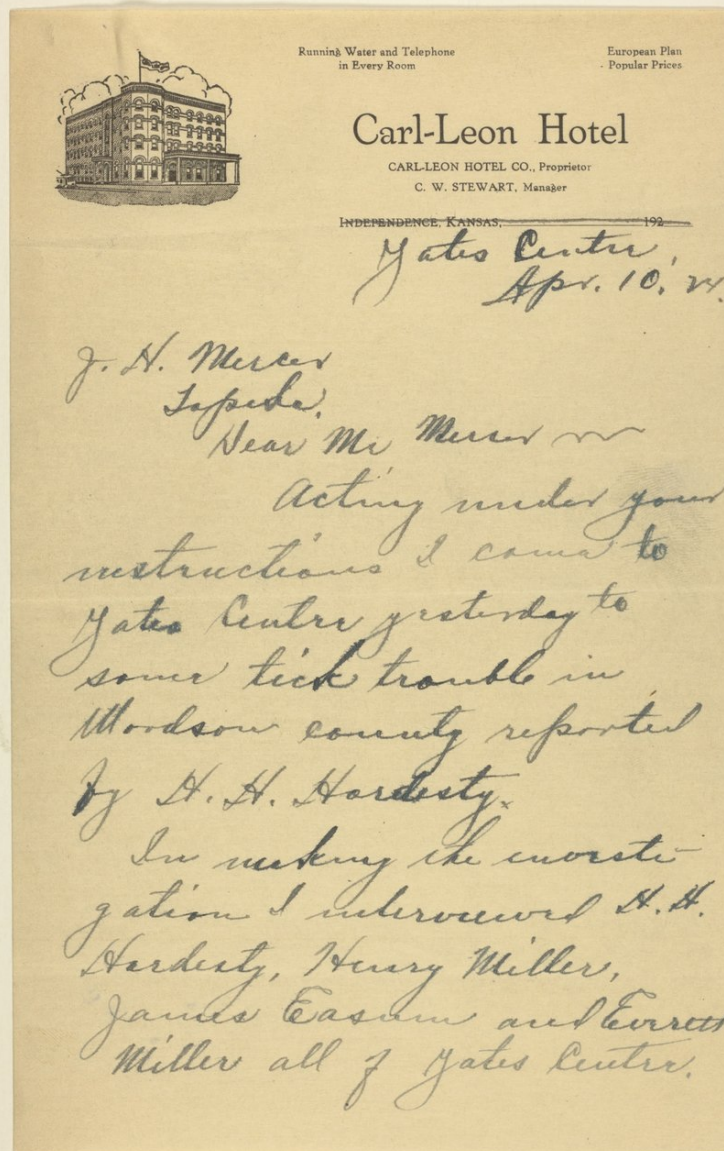 Running Water and Telephone
in Every Room
European Plan
Popular Prices
Carl-Leon Hotel
CARL-LEON HOTEL CO., Proprietor
C. W. STEWART, Manager
INDEPENDENCE, KANSAS, 192
Yates Center,
Apr. 10, 24.
J. H. Mercer
Topeka.
Dear Mr Mercer
Acting under your
instructions I came to
Yates Center yesterday to
some tick trouble in
Woodson county reported
by H. H. Hardesty.
In making the investi-
gation I interviewed H. H.
Hardesty, Henry Miller,
James Easum and Everett
Miller all of Yates Center.